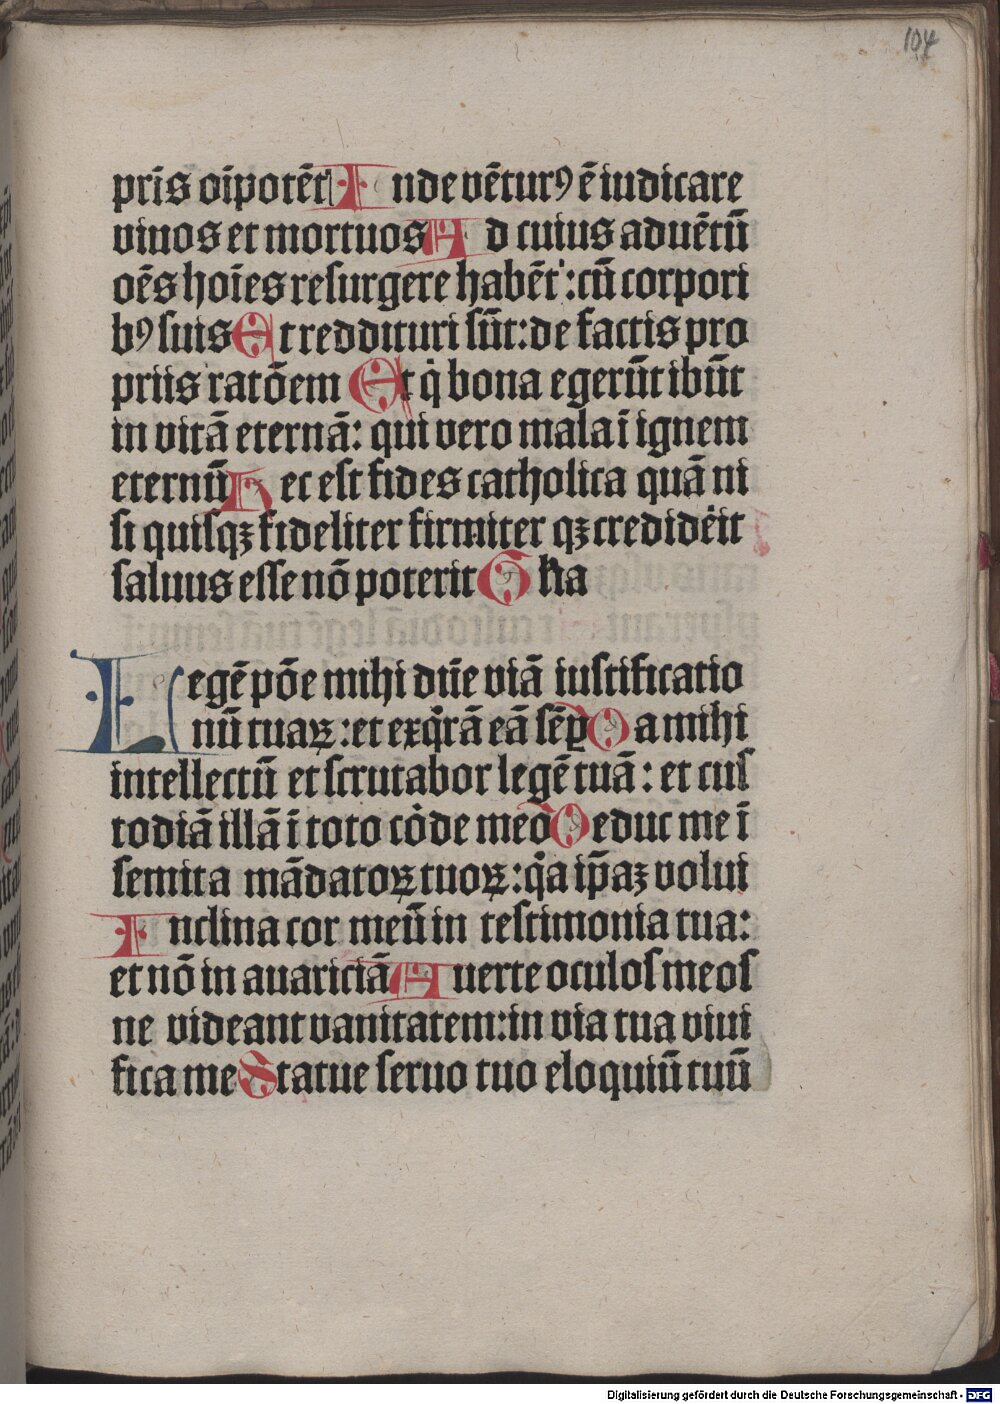 104
pr̄is oīpotēt Inde vētur⁹ ē iudicare
viuos et mortuos Ad cuius aduētū
oēs hoīes resurgere habēt: cū corpori
b⁹ suis Et reddituri sūt: de factis pro
priis ratōem Et q̇ bona egerūt ibūt
in vitā eternā: qui vero mala ī ignem
eternū Hec est fides catholica quā ni
si quisqꝫ fideliter firmiter qꝫ credidēit
saluus esse nō poterit Glia
Legē pōe mihi dn̄e viā iustificatio
nū tuaꝝ: et exq̇rā eā sēp̲ Da mihi
intellectū et scrutabor legē tuā: et cus
todiā illā ī toto cōde meo Deduc me ī
semita mādatoꝝ tuoꝝ: q̇a ip̄aꝫ volui
Inclina cor meū in testimonia tua:
et nō in auariciā Auerte oculos meos
ne videant vanitatem: in via tua viui
fica me Statue seruo tuo eloquiū tuū
Digitalisierung gefördert durch die Deutsche Forschungsgemeinschaft - DFG